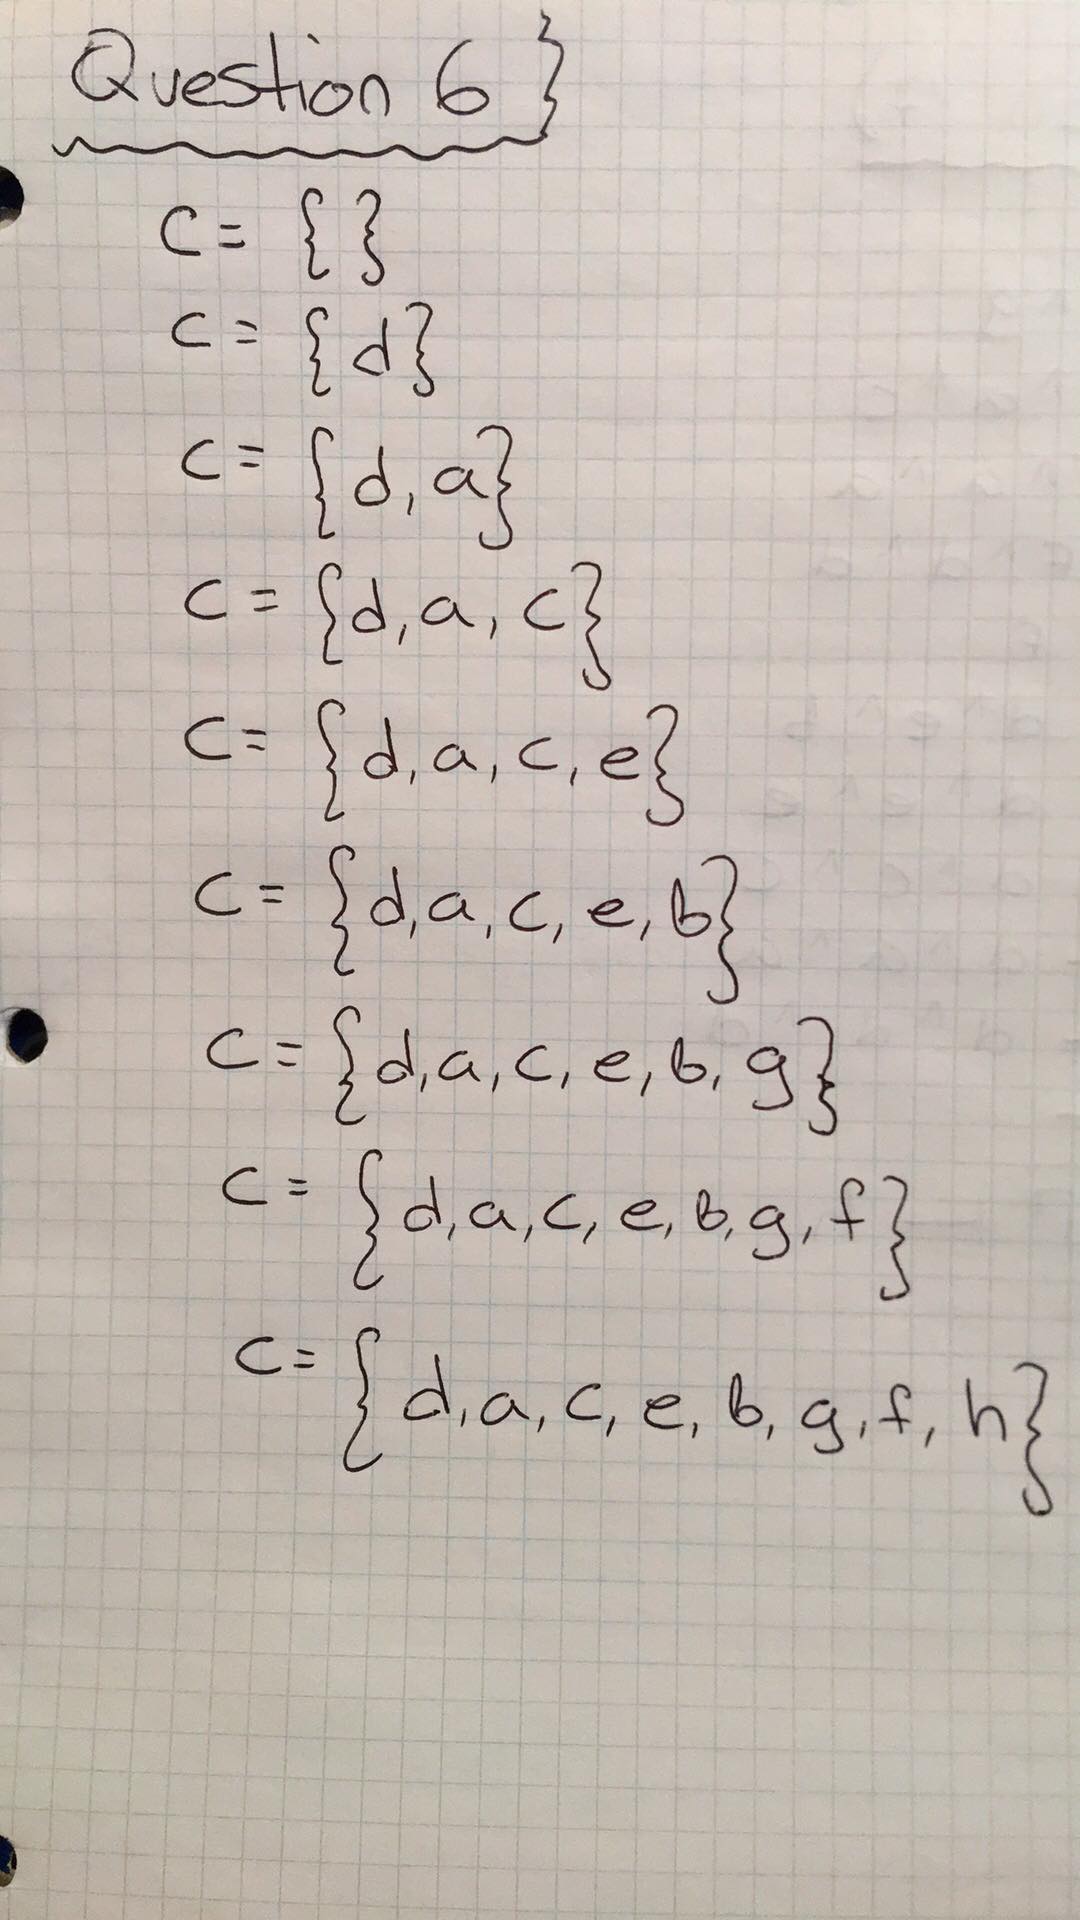 Question 6
C = { }
C = {d}
C = {d, a}
C = {d, a, c}
C = {d, a, c, e}
C = {d, a, c, e, b}
C = {d, a, c, e, b, g}
C = {d, a, c, e, b, g, f}
C = {d, a, c, e, b, g, f, h}